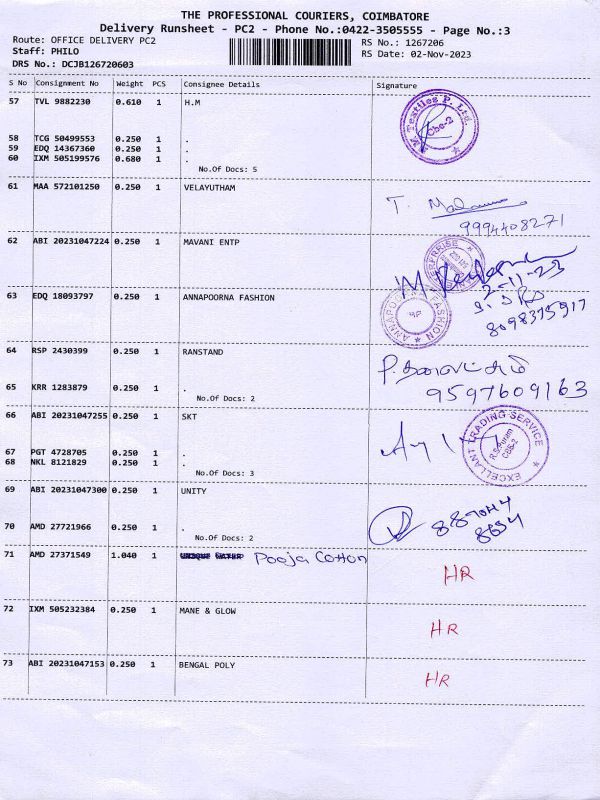 THE PROFESSIONAL COURIERS, COIMBATORE
Delivery Runsheet - PC2 - Phone No.:0422-3505555 - Page No.:3
Route: OFFICE DELIVERY PC2
RS No.: 1267206
Staff: PHILO
RS Date: 02-Nov-2023
DRS No.: DCJB126720603
S No Consignment No Weight PCS Consignee Details Signature
57 TVL 9882230 0.610 1 H.M
Textiles P. Ltd.
Cbe-2
58 TCG 50499553 0.250 1 .
59 EDQ 14367360 0.250 1 .
60 IXM 505199576 0.680 1 .
No.Of Docs: 5
61 MAA 572101250 0.250 1 VELAYUTHAM
T.
9994408271
62 ABI 20231047224 0.250 1 MAVANI ENTP
2-11-23
8098375917
63 EDQ 18093797 0.250 1 ANNAPOORNA FASHION
ANNAPOORNA FASHION
64 RSP 2430399 0.250 1 RANSTAND
9597609163
65 KRR 1283879 0.250 1 .
No.Of Docs: 2
66 ABI 20231047255 0.250 1 SKT
EXCELLANT TRADING SERVICE
R.S.Puram
CBE-2
67 PGT 4728705 0.250 1 .
68 NKL 8121829 0.250 1 .
No.Of Docs: 3
69 ABI 20231047300 0.250 1 UNITY
70 AMD 27721966 0.250 1 .
No.Of Docs: 2
71 AMD 27371549 1.040 1 Pooja Cotton
HR
72 IXM 505232384 0.250 1 MANE & GLOW
HR
73 ABI 20231047153 0.250 1 BENGAL POLY
HR